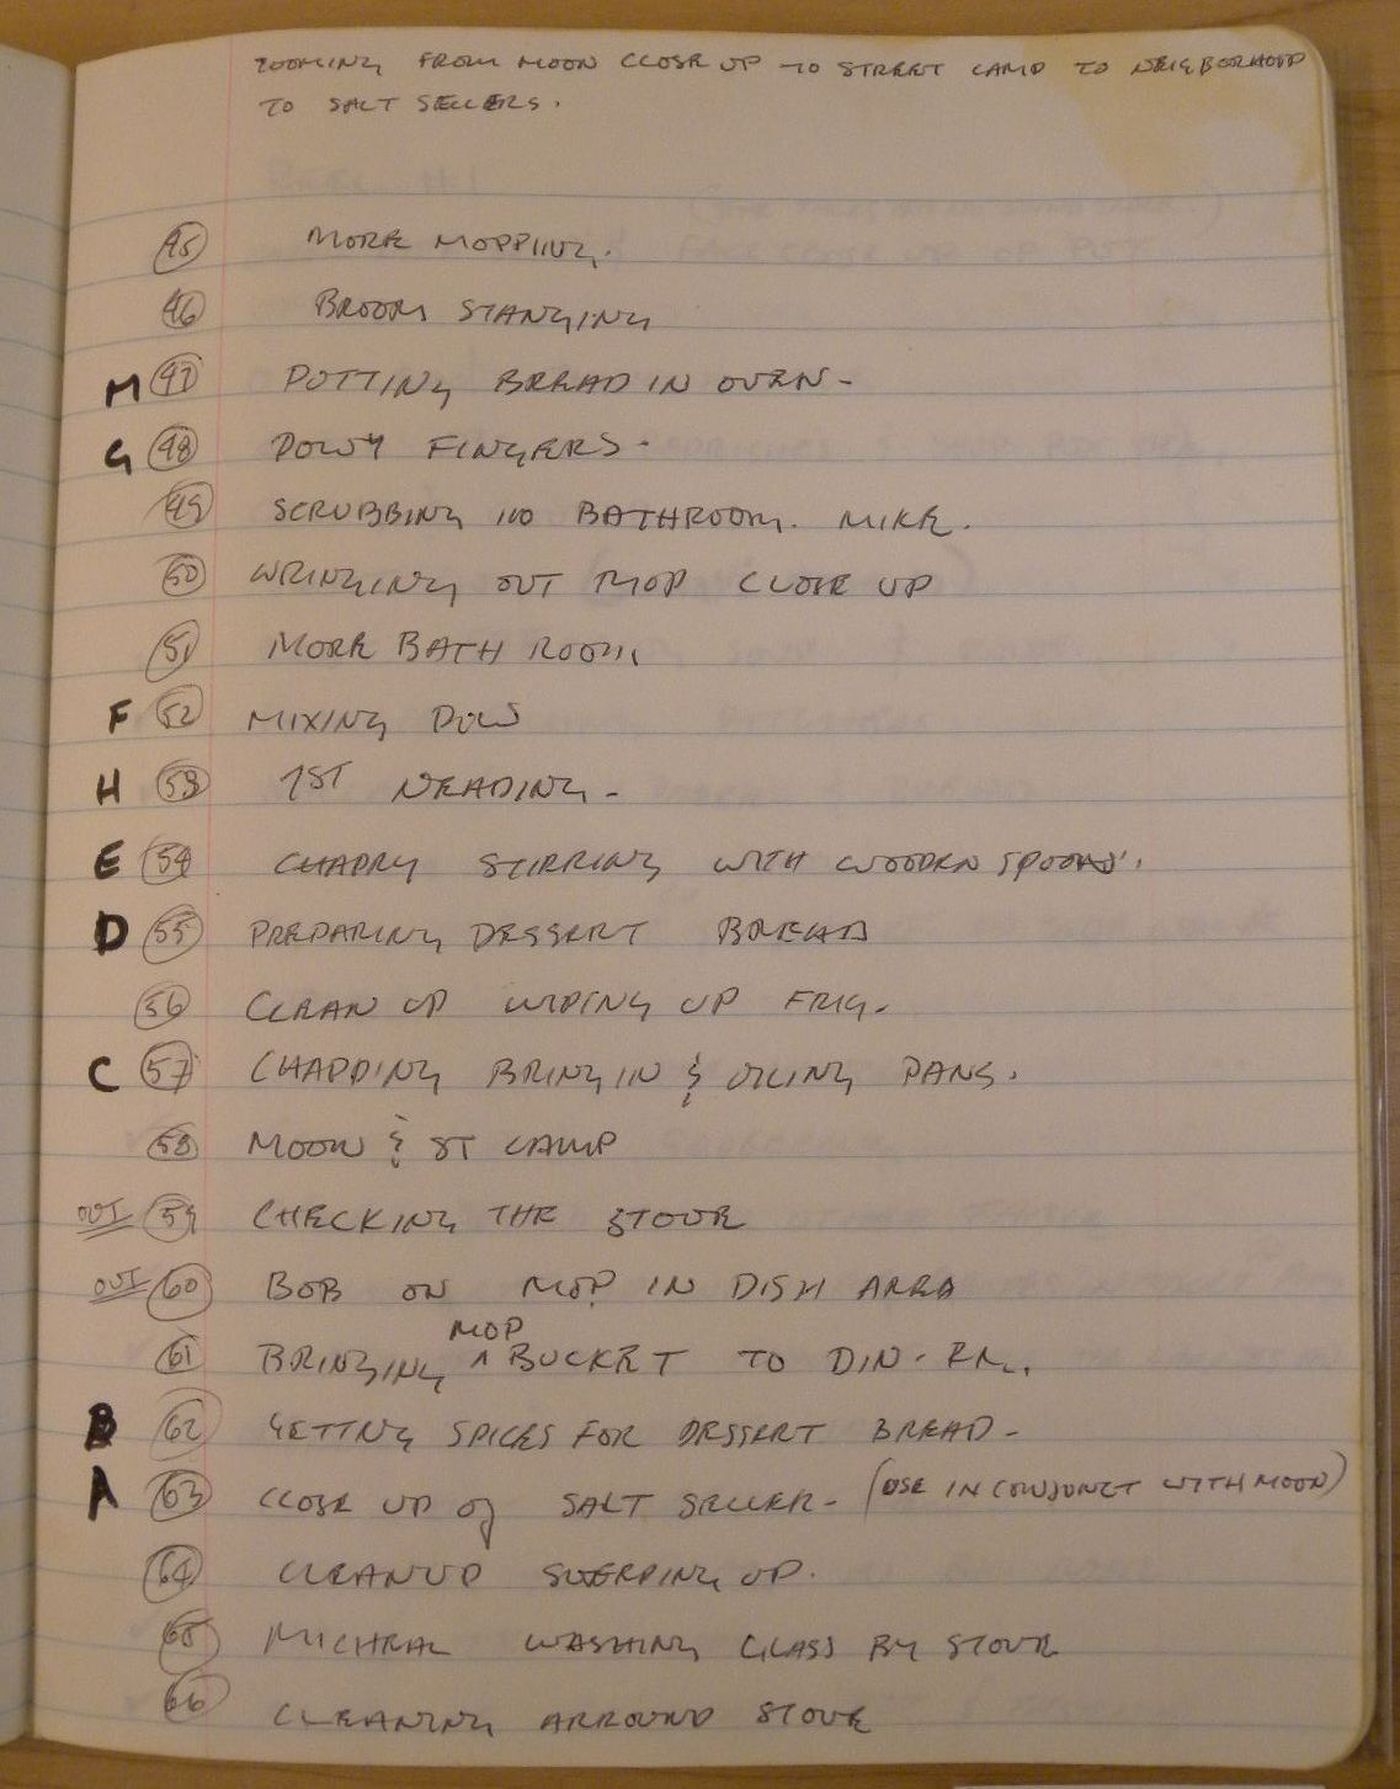 ZOOMING FROM MOON CLOSE UP TO STREET LAMP TO NEIGBORHOOD
TO SALT SELLERS.
45 MORE MOPPING.
46 BROOM STANGING
M 47 PUTTING BREAD IN OVEN -
G 48 DOWY FINGERS -
49 SCRUBBING IN BATHROOM. MIKE.
50 WRINGING OUT MOP CLOSE UP
51 MORE BATH ROOM
F 52 MIXING DOW
H 53 1ST NEADING -
E 54 STIRRING WITH WOODEN SPOONS.
D 55 PREPARING DESSERT BREAD
56 CLEAN UP WIPING UP FRIG.
C 57 CHAPPING BRINGIN & OILING PANS.
58 MOON & ST LAMP
OUT 59 CHECKING THE STOVE
OUT 60 BOB ON MOP IN DISH AREA
MOP
61 BRINGING ^ BUCKET TO DIN. RM.
B 62 GETTING SPICES FOR DESSERT BREAD -
A 63 CLOSE UP OF SALT SELLER - (USE IN CONJUNCT WITH MOON)
64 CLEANUP SWEEPING UP.
65 MICHEAL WASHING GLASS BY STOVE
66 CLEANING ARROUND STOVE